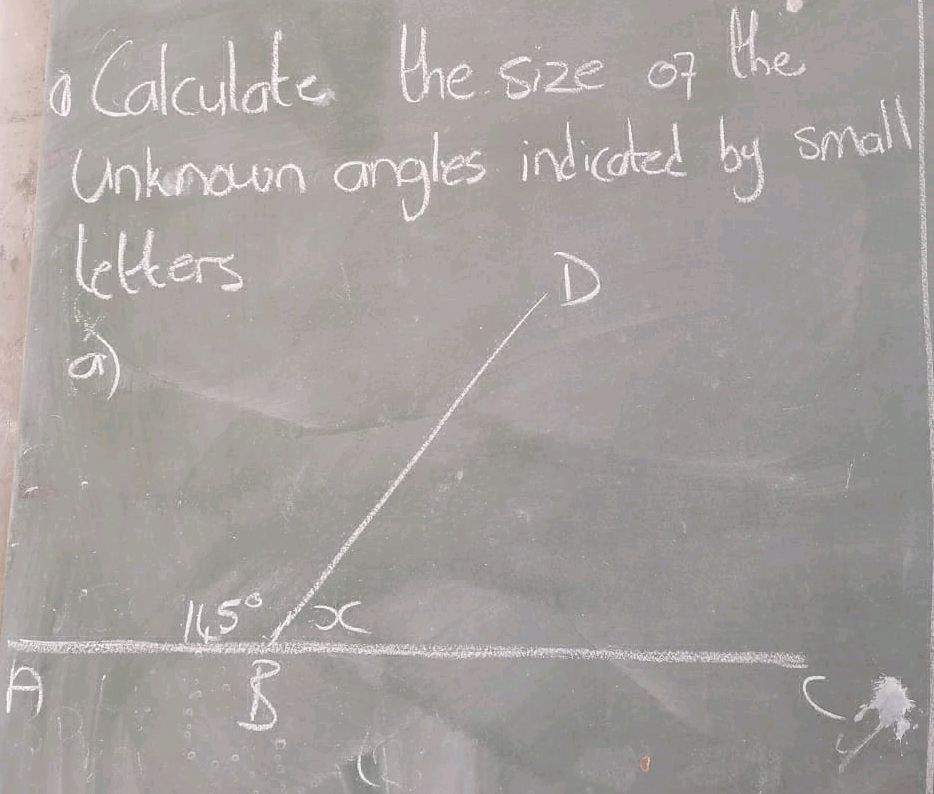 Calculate the size of the
Unknown angles indicated by small
letters
a)
D
145° x
A B C